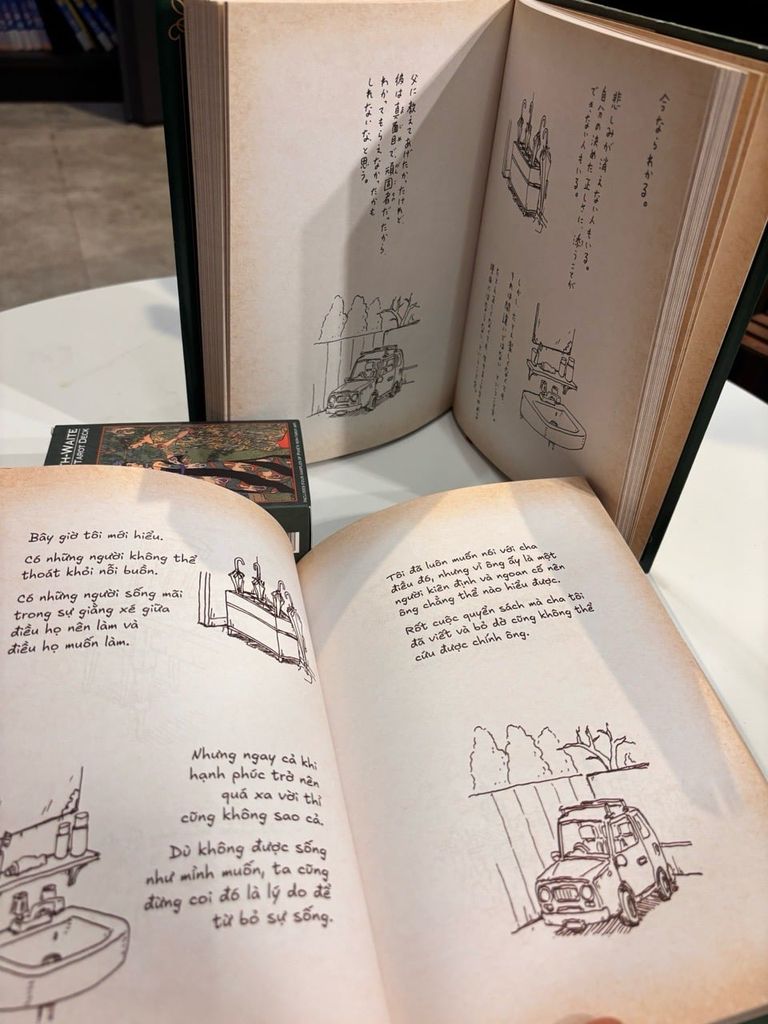 今ならわかる。
悲しみが消えない人もいる。
自分の決めた正しさに、添うことが
できない人もいる。
父に教えてあげたかったけれど、
彼は真面目で、頑固者だったから、
わかってもらえなかったかも
しれないな、と思う。
TH-WAITE
TAROT DECK
Bây giờ tôi mới hiểu.
Có những người không thể
thoát khỏi nỗi buồn.
Có những người sống mãi
trong sự giằng xé giữa
điều họ nên làm và
điều họ muốn làm.
Nhưng ngay cả khi
hạnh phúc trở nên
quá xa vời thì
cũng không sao cả.
Dù không được sống
như mình muốn, ta cũng
đừng coi đó là lý do để
từ bỏ sự sống.
Tôi đã luôn muốn nói với cha
điều đó, nhưng vì ông ấy là một
người kiên định và ngoan cố nên
ông chẳng thể nào hiểu được.
Rốt cuộc quyển sách mà cha tôi
đã viết và bỏ dở cũng không thể
cứu được chính ông.